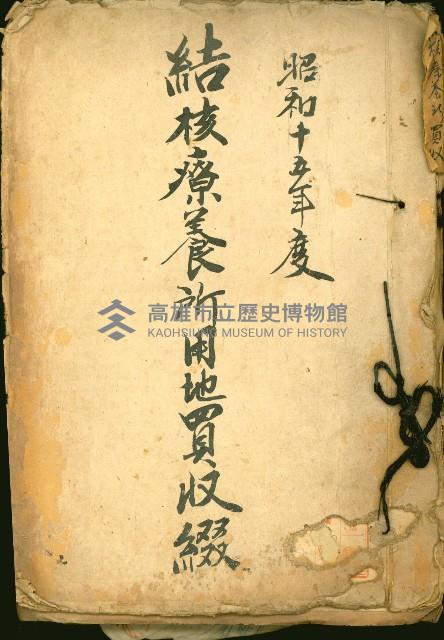 昭和十五年度
結核療養所用地買收綴
高雄市立歷史博物館
KAOHSIUNG MUSEUM OF HISTORY